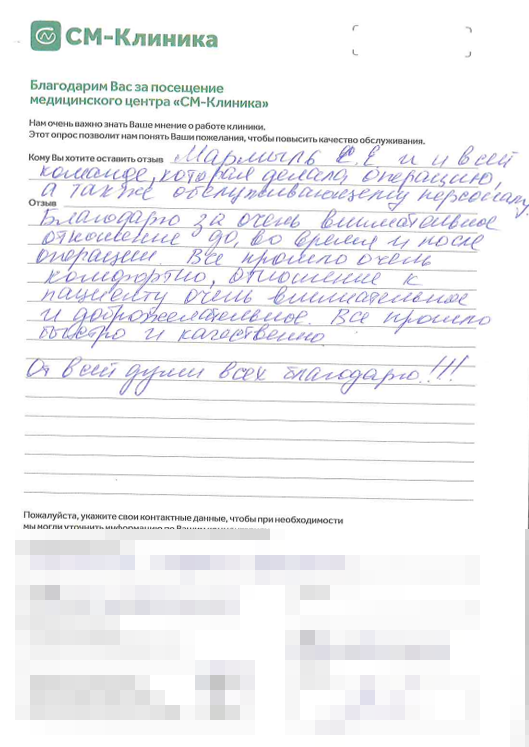 СМ-Клиника
Благодарим Вас за посещение
медицинского центра «СМ-Клиника»
Нам очень важно знать Ваше мнение о работе клиники.
Этот опрос позволит нам понять Ваши пожелания, чтобы повысить качество обслуживания.
Кому Вы хотите оставить отзыв Мармыль С.Е и и всей
команде, которая делала операцию,
а также обслуживающему персоналу,
Отзыв
Благодарю за очень внимательное
отношение до, во время и после
операции Все прошло очень
комфортно, отношение к
пациенту очень внимательное
и доброжелательное. Все прошло
быстро и качественно.
От всей души всех благодарю!!!
Пожалуйста, укажите свои контактные данные, чтобы при необходимости
мы могли уточнить информацию по Вашим